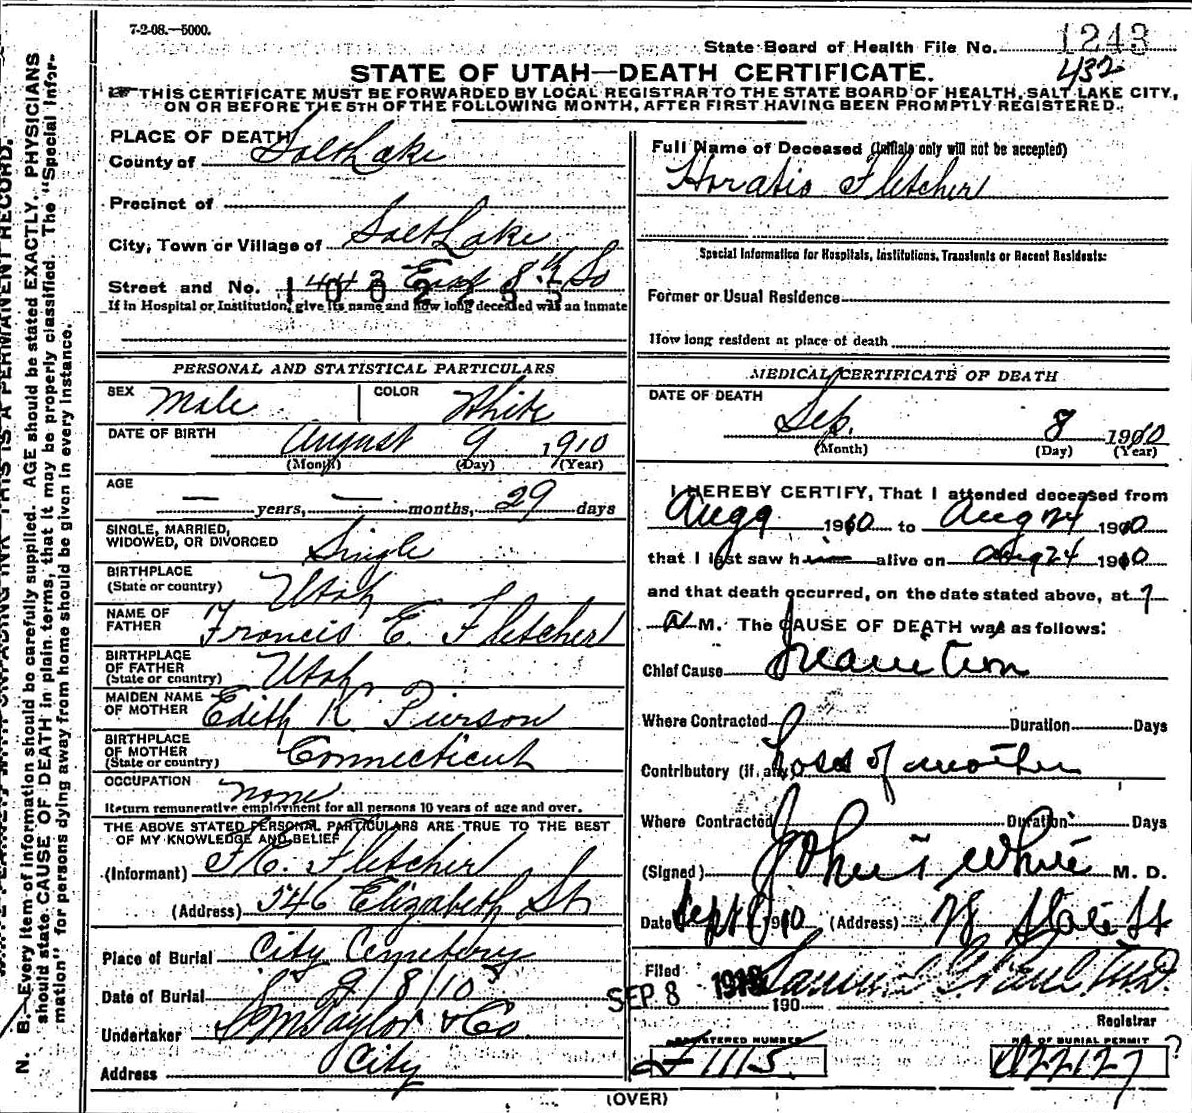 7-2-08.—5000.
State Board of Health File No. 1243
432
STATE OF UTAH—DEATH CERTIFICATE.
THIS CERTIFICATE MUST BE FORWARDED BY LOCAL REGISTRAR TO THE STATE BOARD OF HEALTH, SALT LAKE CITY,
ON OR BEFORE THE 5TH OF THE FOLLOWING MONTH, AFTER FIRST HAVING BEEN PROMPTLY REGISTERED.
N. B.—Every item of information should be carefully supplied. AGE should be stated EXACTLY. PHYSICIANS
should state CAUSE OF DEATH in plain terms, that it may be properly classified. The "Special Infor-
mation" for persons dying away from home should be given in every instance.
PLACE OF DEATH
County of Salt Lake
Precinct of
City, Town or Village of Salt Lake
Street and No. 443 East 8th So
1002253
If in Hospital or Institution, give its name and how long deceased was an inmate
PERSONAL AND STATISTICAL PARTICULARS
SEX Male COLOR White
DATE OF BIRTH August 9 1910
(Month) (Day) (Year)
AGE — years, — months, 29 days
SINGLE, MARRIED,
WIDOWED, OR DIVORCED Single
BIRTHPLACE
(State or country) Utah
NAME OF
FATHER Francis E. Fletcher
BIRTHPLACE
OF FATHER
(State or country) Utah
MAIDEN NAME
OF MOTHER Edith K Pierson
BIRTHPLACE
OF MOTHER
(State or country) Connecticut
OCCUPATION none
Return remunerative employment for all persons 10 years of age and over.
THE ABOVE STATED PERSONAL PARTICULARS ARE TRUE TO THE BEST
OF MY KNOWLEDGE AND BELIEF
(Informant) F. E. Fletcher
(Address) 546 Elizabeth St
Place of Burial City Cemetery
Date of Burial 9/8/10
Undertaker S M Taylor & Co
Address City
Full Name of Deceased (Initials only will not be accepted)
Horatio Fletcher
Special Information for Hospitals, Institutions, Transients or Recent Residents:
Former or Usual Residence
How long resident at place of death
MEDICAL CERTIFICATE OF DEATH
DATE OF DEATH
Sep. 8 1910
(Month) (Day) (Year)
I HEREBY CERTIFY, That I attended deceased from
Aug 9 1910 to Aug 24 1910
that I last saw him alive on Aug 24 1910
and that death occurred, on the date stated above, at 7
a M. The CAUSE OF DEATH was as follows:
Chief Cause Inanition
Where Contracted Duration Days
Contributory (if any) Loss of mother
Where Contracted Duration Days
(Signed) M. D.
Date Sept 8 1910 (Address) State St
Filed SEP 8 1910 190
Registrar
REGISTERED NUMBER NO. OF BURIAL PERMIT
F 1115. A22127 ?
(OVER)